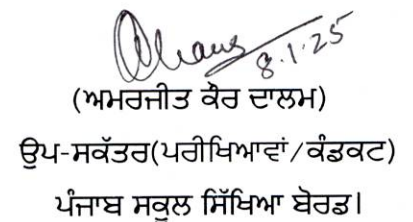 8.1.25
(ਅਮਰਜੀਤ ਕੌਰ ਦਾਲਮ)
ਉਪ-ਸਕੱਤਰ(ਪਰੀਖਿਆਵਾਂ/ਕੰਡਕਟ)
ਪੰਜਾਬ ਸਕੂਲ ਸਿੱਖਿਆ ਬੋਰਡ।